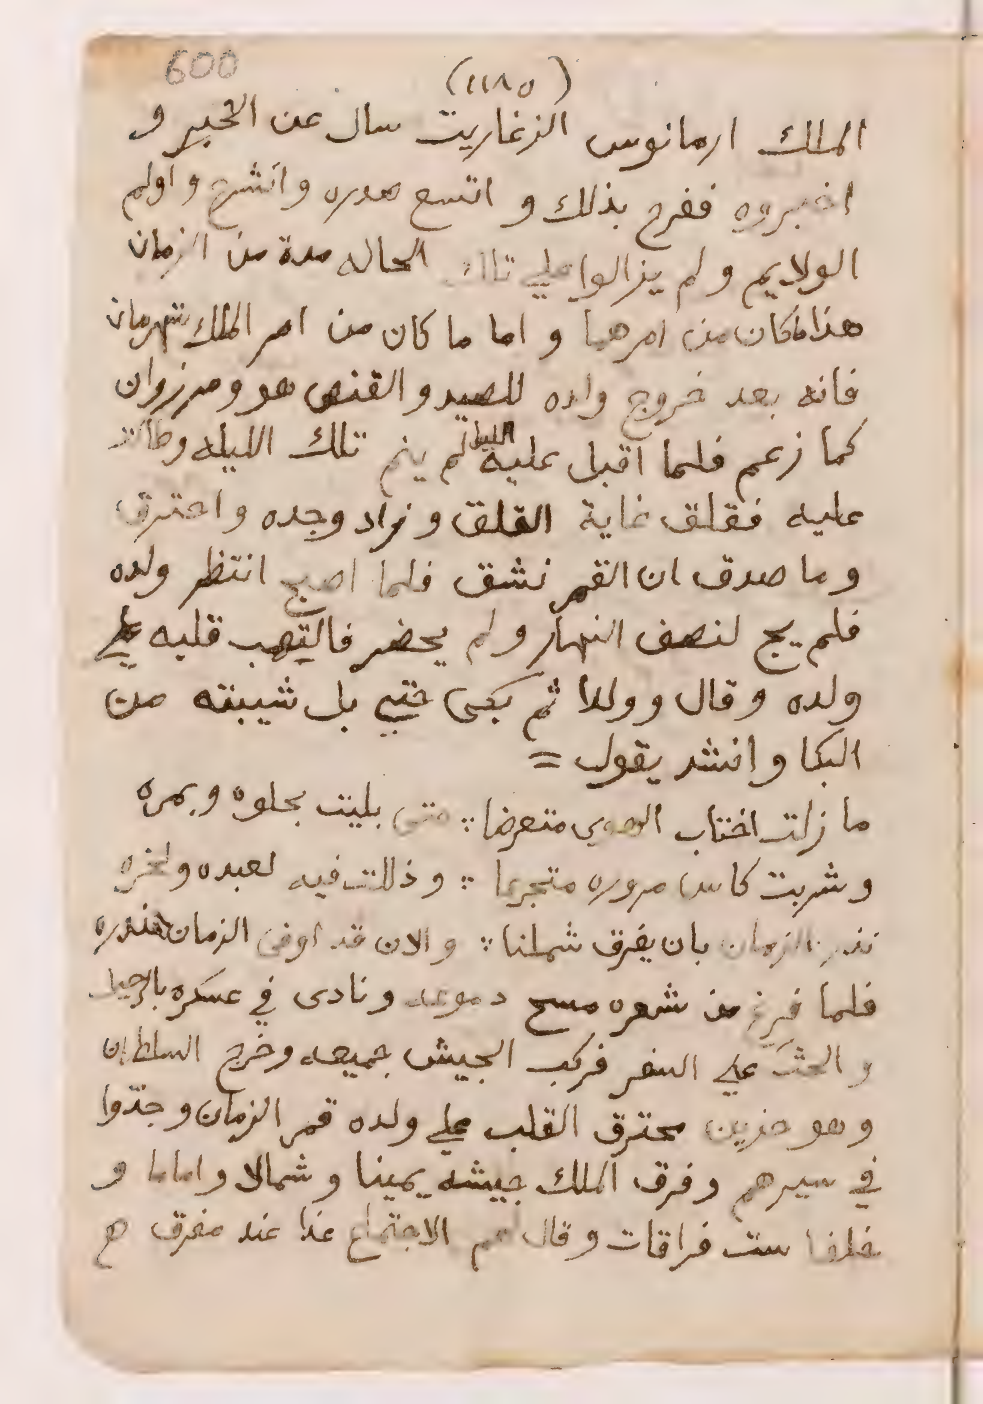 600
(١١٨٥)
الملك ارمانوس الزغاريت سال عن الخبر و
اخبروه ففرح بذلك و اتسع صدره وانشرح و اولم
الولايم و لم يزالوا علي تلك الحاله مدة من الزمان
هذا ماكان من امرهما و اما ما كان من امر الملك شهرمان
فانه بعد خروج ولده للصيد و القنص هو و مرزوان
كما زعم فلما اقبل عليه الليل لم ينم تلك الليله وطالت
عليه فقلق غاية القلق و زاد وجده و احترق
و ما صدق ان القمر نشق فلما اصبح انتظر ولده
فلم يج لنصف النهار و لم يحضر فالتهب قلبه علي
ولده و قال و ولدا ثم بكى حتي بل شيبته من
البكا و انشد يقول =
ما زلت اختاب الهوى متعرضا ∴ متى بليت بحلوه و بمره
و شربت كاس مروره متجرعا ∴ و ذللت فيه لعبده ولحره
نذر الزمان بان يفرق شملنا ∴ و الان قد اوفى الزمان بنذره
فلما فرغ من شعره مسح دموعه و نادى في عسكره بالرحيل
و الحث علي السفر فركب الجيش جميعه وخرج السلطان
و هو حزين محترق القلب علي ولده قمر الزمان و جدّوا
في سيرهم و فرق الملك جيشه يمينا و شمالا و اماما و
خلفا ست فراقات و قال لهم الاجتماع غدا عند مفرق